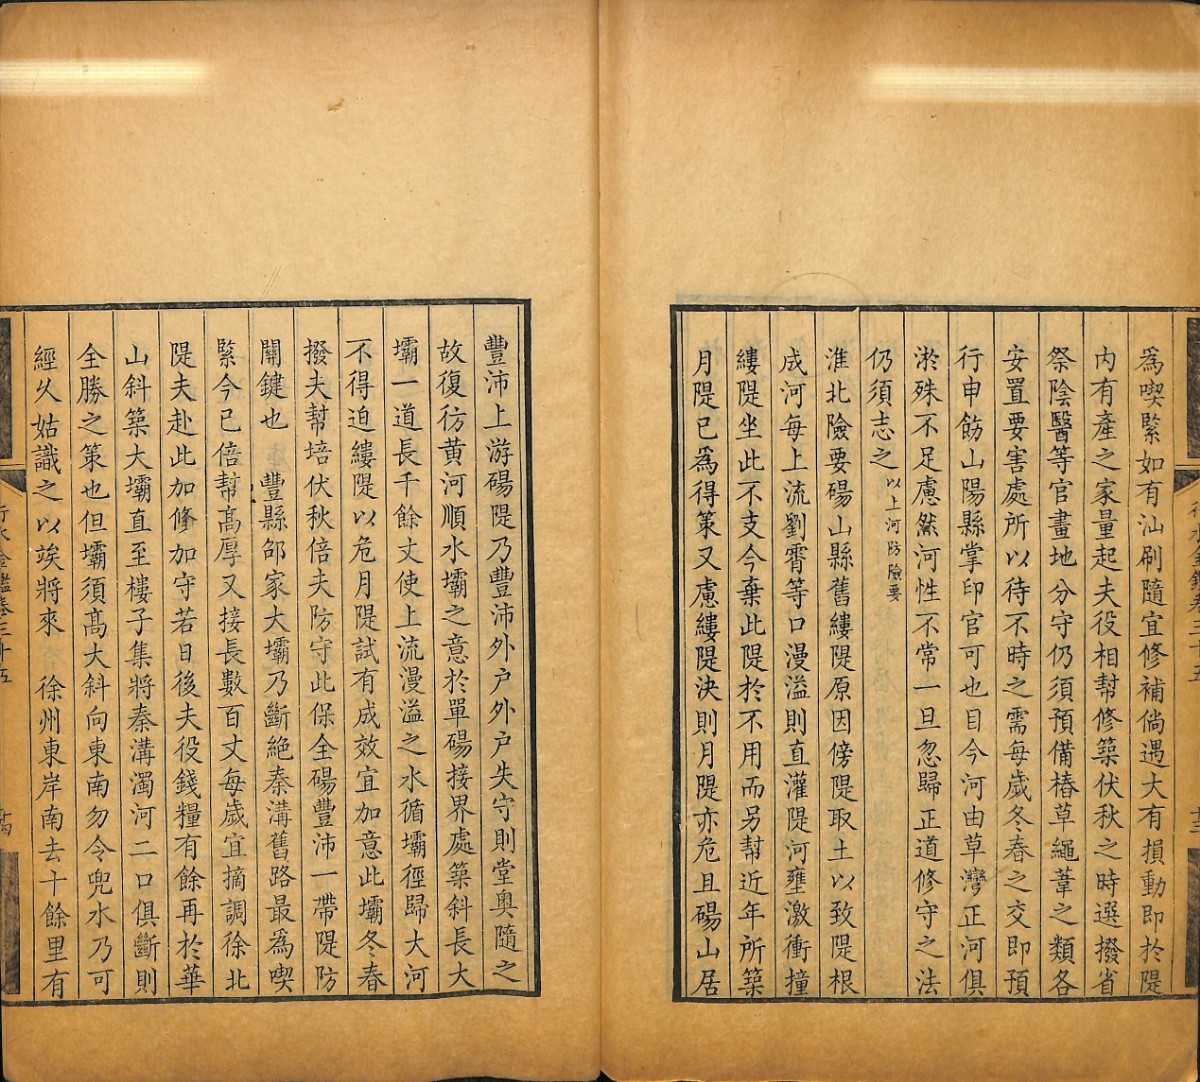 為喫緊如有汕刷隨宜修補倘遇大有損動即於隄
內有產之家量起夫役相幫修築伏秋之時選撥省
祭陰醫等官畫地分守仍須預備樁草繩葦之類各
安置要害處所以待不時之需每歲冬春之交即預
行申飭山陽縣掌印官可也目今河由草灣正河俱
淤殊不足慮然河性不常一旦忽歸正道修守之法
仍須志之以上河防險要
淮北險要碭山縣舊縷隄原因傍隄取土以致隄根
成河每上流劉霄等口漫溢則直灌隄河壅激衝撞
縷隄坐此不支今棄此隄於不用而另幫近年所築
月隄已為得策又慮縷隄決則月隄亦危且碭山居
豐沛上游碭隄乃豐沛外户外户失守則堂奧隨之
故復彷黄河順水壩之意於單碭接界處築斜長大
壩一道長千餘丈使上流漫溢之水循壩徑歸大河
不得迫縷隄以危月隄試有成效宜加意此壩冬春
撥夫幫培伏秋倍夫防守此保全碭豐沛一帶隄防
關鍵也　豐縣邵家大壩乃斷絶秦溝舊路最為喫
緊今已倍幫高厚又接長數百丈每歲宜摘調徐北
隄夫赴此加修加守若日後夫役錢糧有餘再於華
山斜築大壩直至樓子集將秦溝濁河二口俱斷則
全勝之策也但壩須高大斜向東南勿令兜水乃可
經久姑識之以竢將來　徐州東岸南去十餘里有
行水金鑑卷三十五